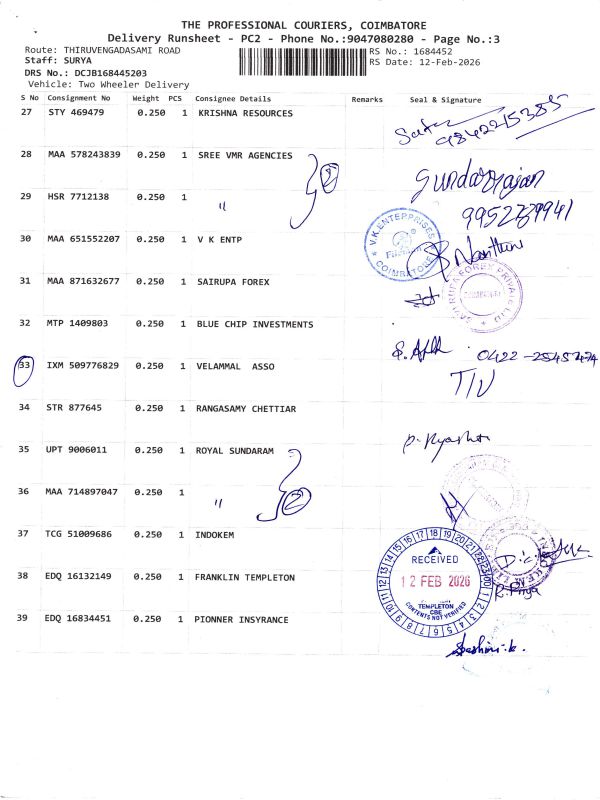 THE PROFESSIONAL COURIERS, COIMBATORE
Delivery Runsheet - PC2 - Phone No.:9047080280 - Page No.:3
Route: THIRUVENGADASAMI ROAD
RS No.: 1684452
Staff: SURYA
RS Date: 12-Feb-2026
DRS No.: DCJB168445203
Vehicle: Two Wheeler Delivery
S No Consignment No Weight PCS Consignee Details Remarks Seal & Signature
27 STY 469479 0.250 1 KRISHNA RESOURCES
9842215385
28 MAA 578243839 0.250 1 SREE VMR AGENCIES
2
Sundarrajan
29 HSR 7712138 0.250 1 "
30 MAA 651552207 0.250 1 V K ENTP
V.K.ENTERPRISES
COIMBATORE
Nanthini
31 MAA 871632677 0.250 1 SAIRUPA FOREX
SAIRUPA FOREX PRIVATE LTD
32 MTP 1409803 0.250 1 BLUE CHIP INVESTMENTS
33 IXM 509776829 0.250 1 VELAMMAL ASSO
0422-2545474
34 STR 877645 0.250 1 RANGASAMY CHETTIAR
35 UPT 9006011 0.250 1 ROYAL SUNDARAM
36 MAA 714897047 0.250 1 "
2
37 TCG 51009686 0.250 1 INDOKEM
38 EDQ 16132149 0.250 1 FRANKLIN TEMPLETON
RECEIVED
12 FEB 2026
TEMPLETON
CBE
CONTENTS NOT VERIFIED
R. Priya
39 EDQ 16834451 0.250 1 PIONNER INSYRANCE